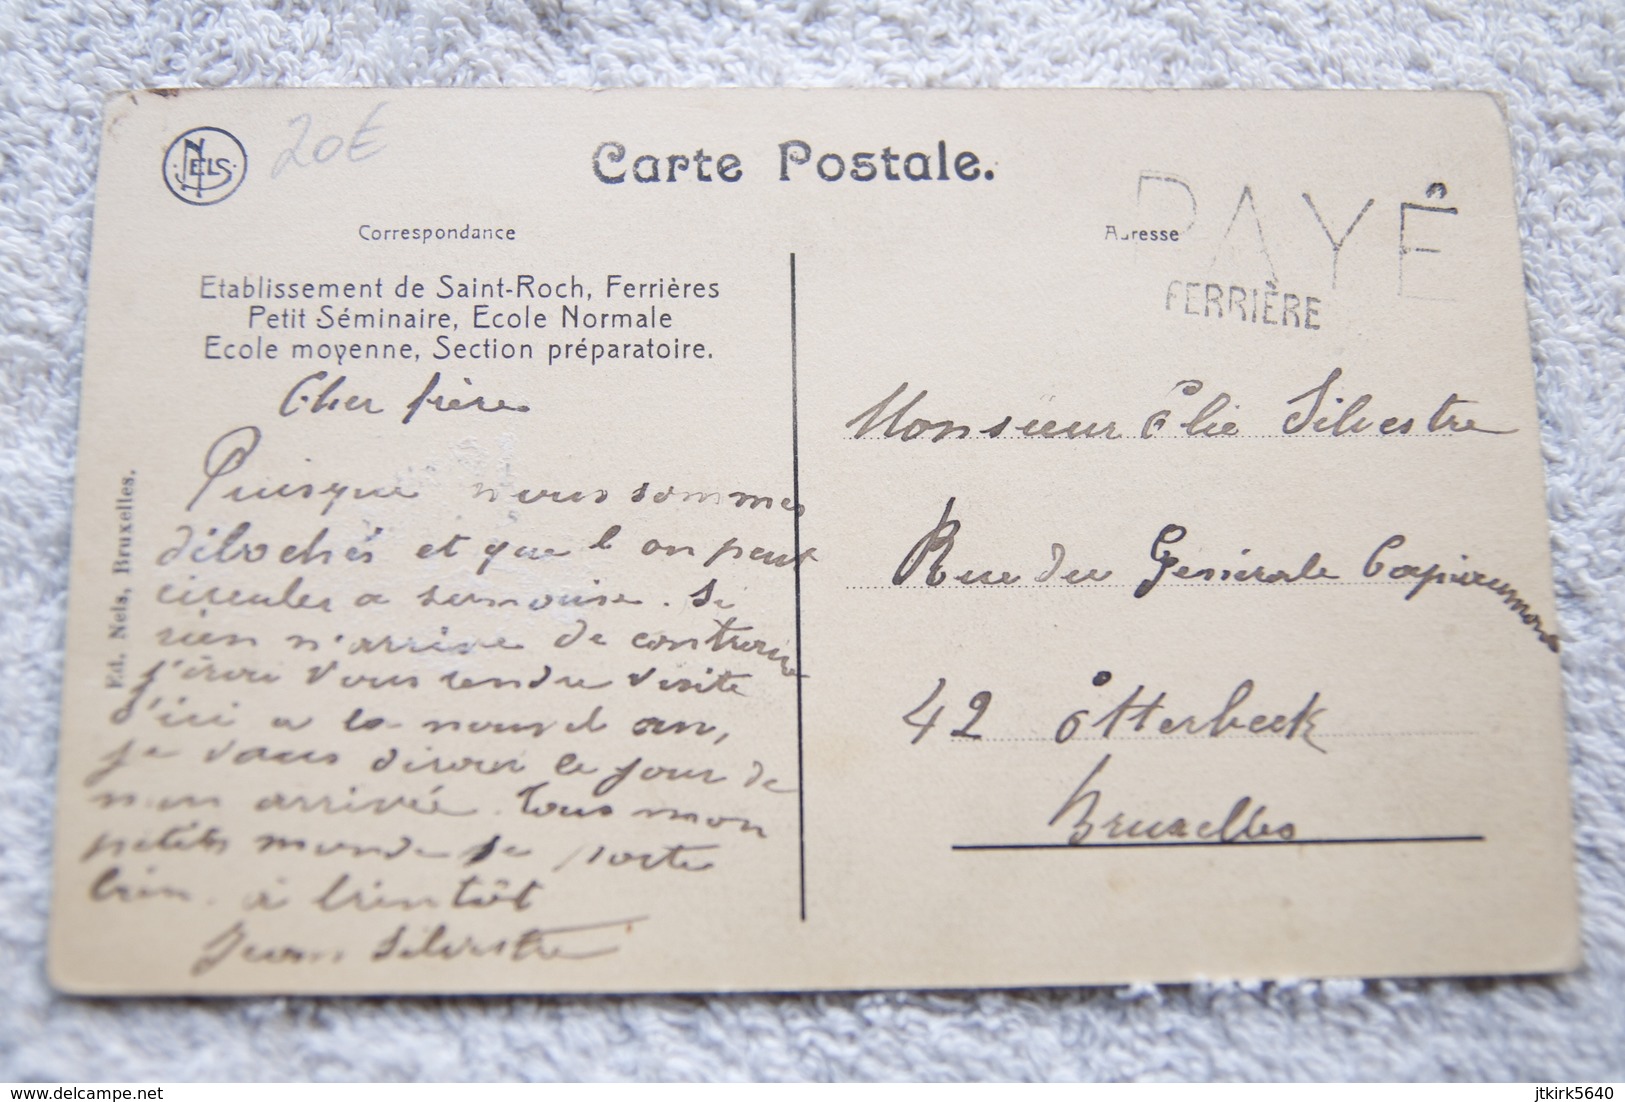 NELS
20€
Carte Postale.
Correspondance
Adresse
PAYÉ
FERRIÈRE
Etablissement de Saint-Roch, Ferrières
Petit Séminaire, Ecole Normale
Ecole moyenne, Section préparatoire.
Ed. Nels, Bruxelles.
Cher frère
Puisque nous sommes
délochés et que l on peut
circuler a . Si
rien n'arrive de contraire
j'irai vous rendre visite
d'ici a la nouvel an,
je vous dirai le jour de
mon arrivée. Tous mon
petits monde se porte
bien. à bientôt
Jean Silvestre
Monsieur Elie Silvestre
Rue du Générale Capiaumont
42 Etterbeek
Bruxelles
delcampe.net
jtkirk5640